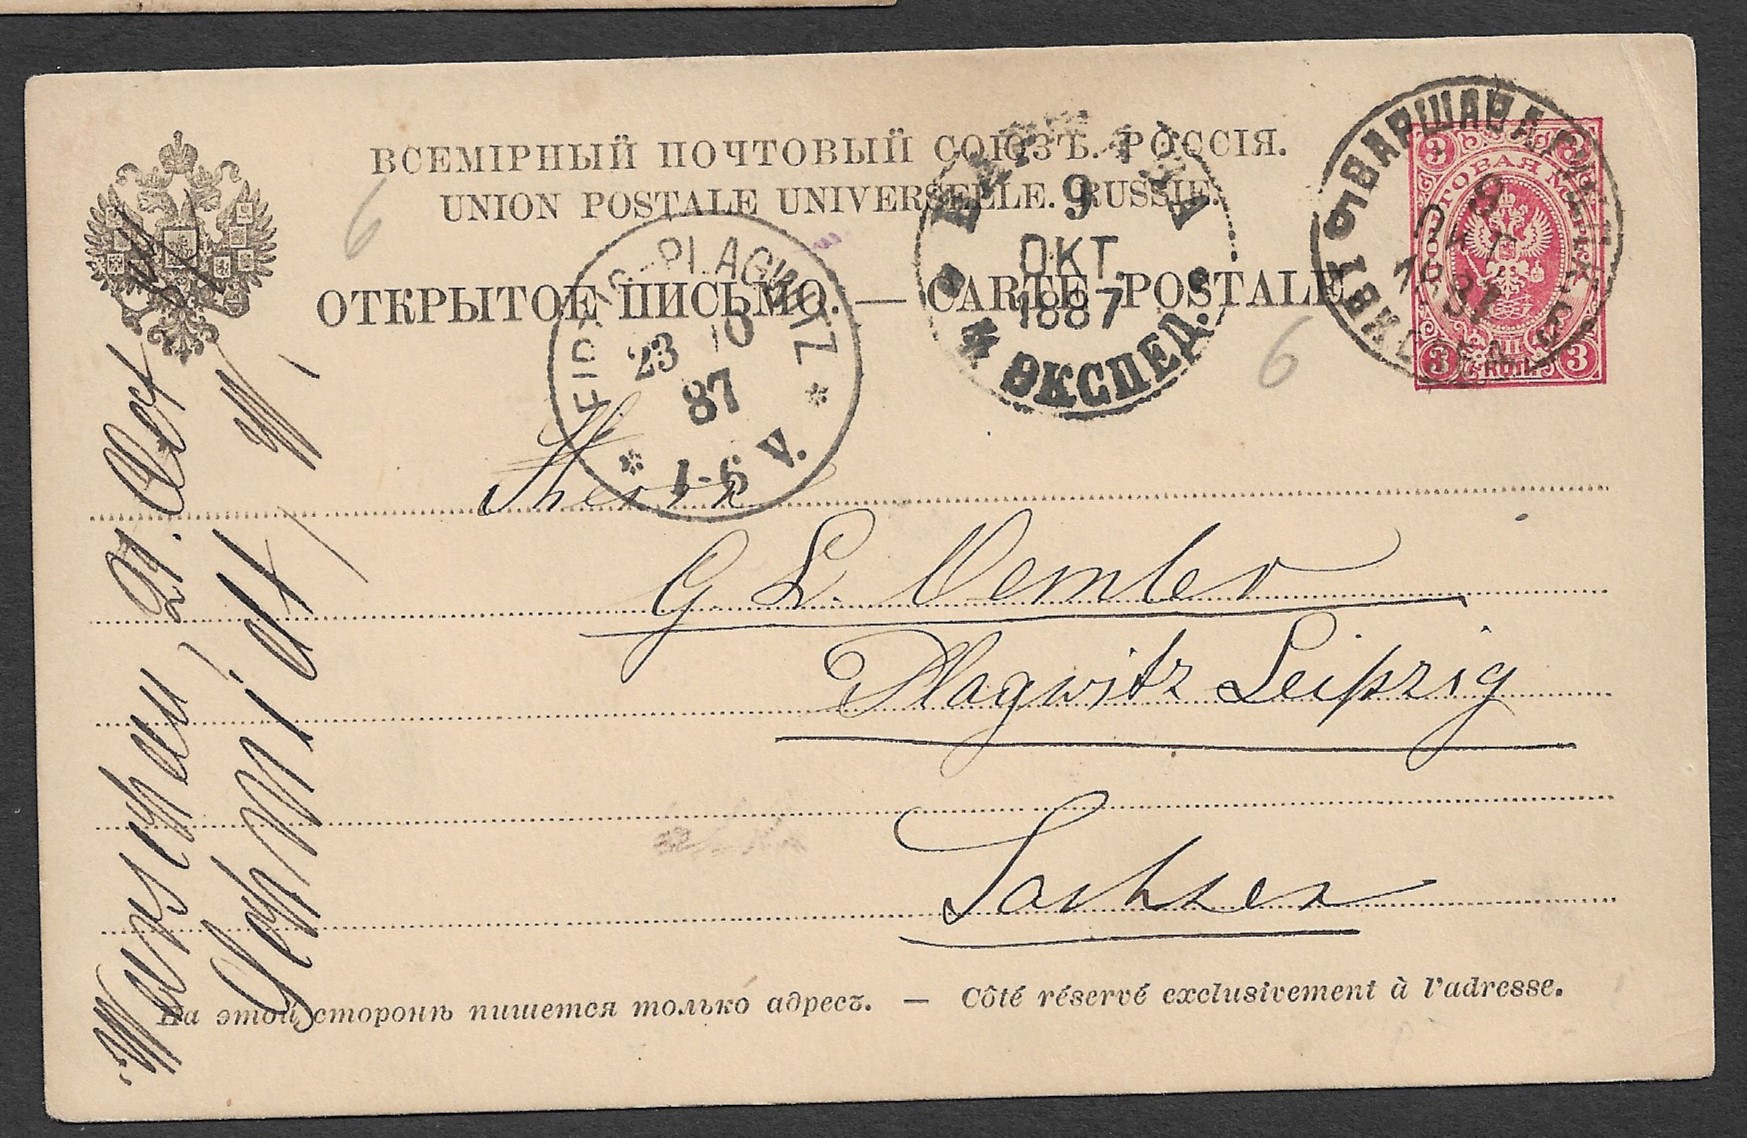 ВСЕМІРНЫЙ ПОЧТОВЫЙ СОЮЗЪ. РОССІЯ.
UNION POSTALE UNIVERSELLE. RUSSIE.
ОТКРЫТОЕ ПИСЬМО. — CARTE POSTALE.
6
6
LEIPZIG-PLAGWITZ
23 10
87
1-6 V.
9
ОКТ.
1887
ЭКСПЕД.
ВАРШАВА
9
ОКТ
1887
ПОЧТОВАЯ МАРКА
3 3
3 КОП. 3
Herrn
G. L.
Plagwitz Leipzig
Sachsen
Warschau, 21. Oct
87
Schmidt
На этой сторонѣ пишется только адресъ. — Côté réservé exclusivement à l'adresse.